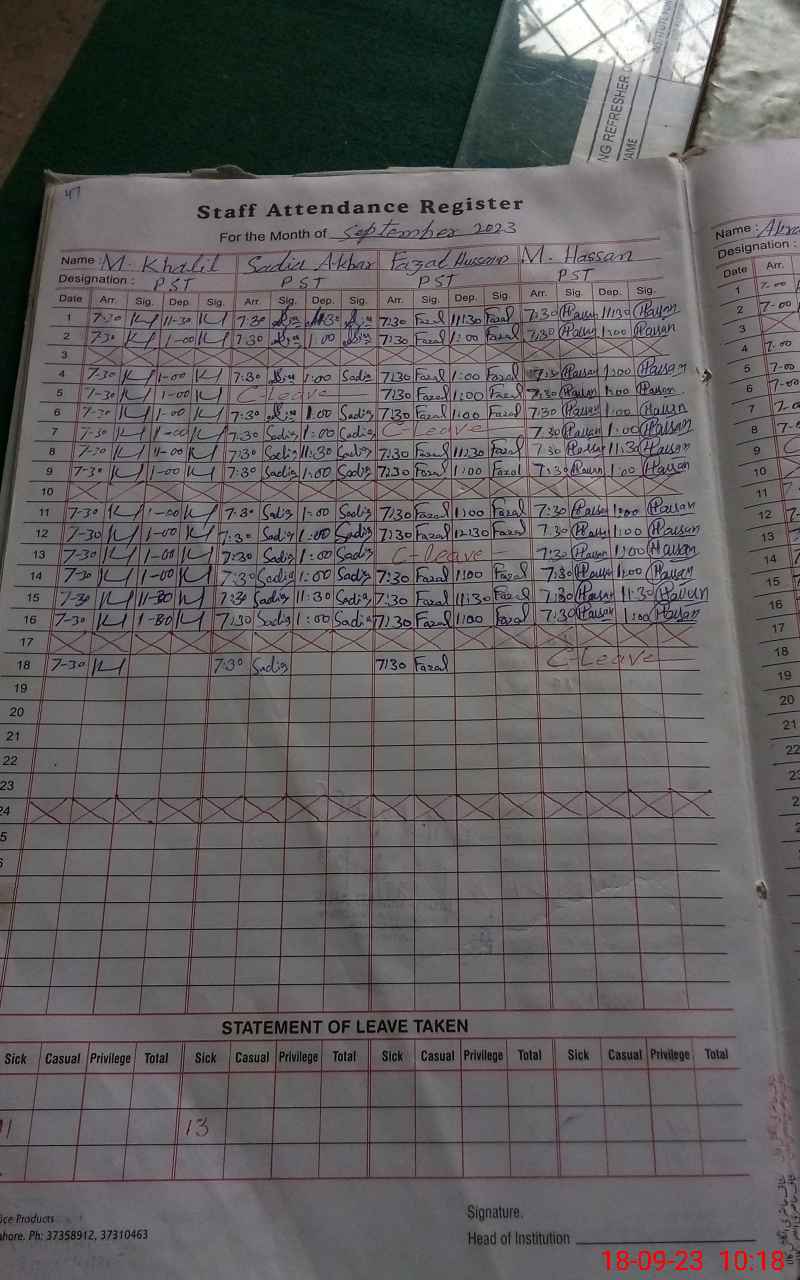 NG REFRESHER
NAME
47
Staff Attendance Register
For the Month of September 2023
Name : M. Khalil Sadia Akhar Fazal Hussain M. Hassan
Designation : PST PST PST PST
Date Arr. Sig. Dep. Sig. Arr. Sig. Dep. Sig. Arr. Sig. Dep. Sig. Arr. Sig. Dep. Sig.
1 7-30 KH 11-30 KH 7:30 11:30 7:30 Fazal 11:30 Fazal 7:30 Hassan 11:30 Hassan
2 7-30 KH 1-00 KH 7:30 1:00 7:30 Fazal 1:00 Fazal 7:30 Hassan 1:00 Hassan
3
4 7-30 KH 1-00 KH 7:30 1:00 Sadia 7:30 Fazal 1:00 Fazal 7:30 Hassan 1:00 Hassan
5 7-30 KH 1-00 KH C-Leave 7:30 Fazal 1:00 Fazal 7:30 Hassan 1:00 Hassan
6 7-30 KH 1-00 KH 7:30 1:00 Sadia 7:30 Fazal 1:00 Fazal 7:30 Hassan 1:00 Hassan
7 7-30 KH 1-00 KH 7:30 Sadia 1:00 Sadia C-Leave 7:30 Hassan 1:00 Hassan
8 7-30 KH 11-00 KH 7:30 Sadia 11:30 Sadia 7:30 Fazal 11:30 Fazal 7:30 Hassan 11:30 Hassan
9 7-30 KH 1-00 KH 7:30 Sadia 1:00 Sadia 7:30 Fazal 1:00 Fazal 7:30 Hassan 1:00 Hassan
10
11 7-30 KH 1-00 KH 7:30 Sadia 1:00 Sadia 7:30 Fazal 1:00 Fazal 7:30 Hassan 1:00 Hassan
12 7-30 KH 1-00 KH 7:30 Sadia 1:00 Sadia 7:30 Fazal 12:30 Fazal 7:30 Hassan 1:00 Hassan
13 7-30 KH 1-00 KH 7:30 Sadia 1:00 Sadia C-leave 7:30 Hassan 1:00 Hassan
14 7-30 KH 1-00 KH 7:30 Sadia 1:00 Sadia 7:30 Fazal 1:00 Fazal 7:30 Hassan 1:00 Hassan
15 7-30 KH 11-30 KH 7:30 Sadia 11:30 Sadia 7:30 Fazal 11:30 Fazal 7:30 Hassan 11:30 Hassan
16 7-30 KH 1-30 KH 7:30 Sadia 1:00 Sadia 7:30 Fazal 1:00 Fazal 7:30 Hassan 1:00 Hassan
17
18 7-30 KH 7:30 Sadia 7:30 Fazal C-Leave
19
20
21
22
23
24
5
STATEMENT OF LEAVE TAKEN
Sick Casual Privilege Total Sick Casual Privilege Total Sick Casual Privilege Total Sick Casual Privilege Total
11 13
ice Products
ahore. Ph: 37358912, 37310463
Signature.
Head of Institution
Name :
Designation :
Date Arr.
1 7-00
2 7-00
3
4 7-00
5 7-00
6 7-00
7 7-0
8 7-0
9 C
10
11 7
12 7-
13 7
14
15
16
17
18
19
20
21
22
18-09-23 10:18